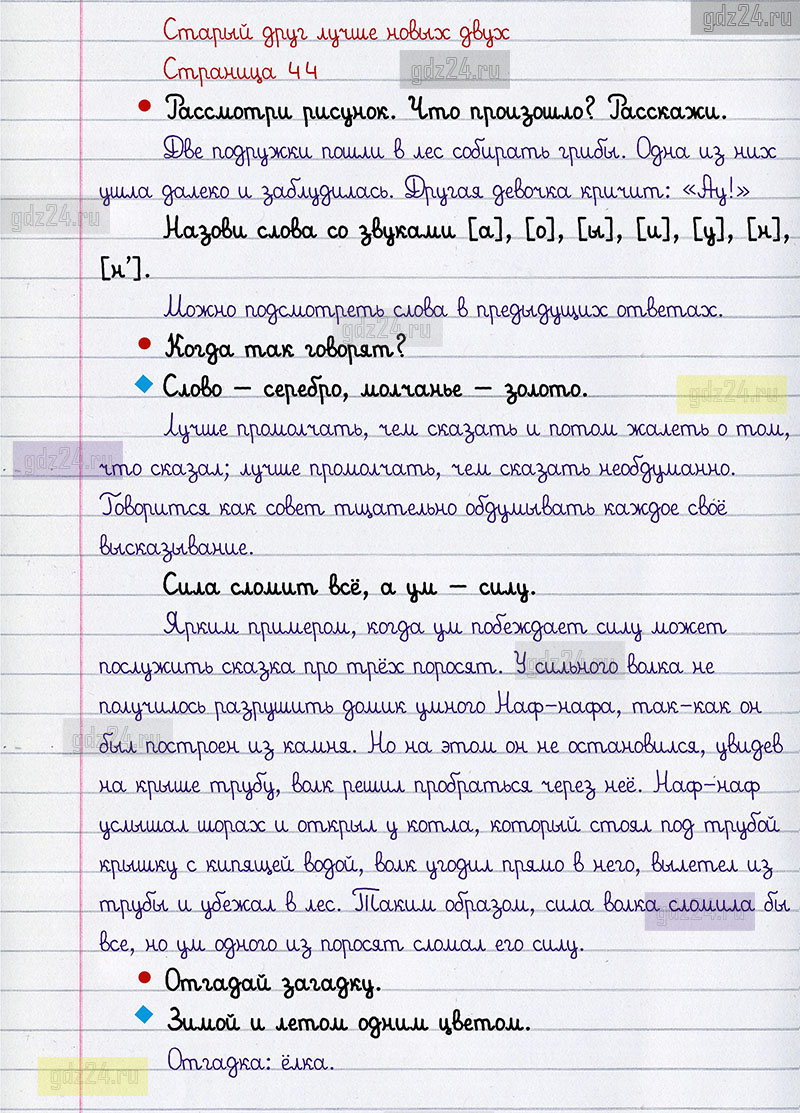 gdz24.ru
Старый друг лучше новых двух
Страница 44
gdz24.ru
Рассмотри рисунок. Что произошло? Расскажи.
Две подружки пошли в лес собирать грибы. Одна из них
ушла далеко и заблудилась. Другая девочка кричит: «Ау!»
gdz24.ru
Назови слова со звуками [а], [о], [ы], [и], [у], [н],
[н’].
Можно подсмотреть слова в предыдущих ответах.
gdz24.ru
Когда так говорят?
Слово – серебро, молчанье – золото.
gdz24.ru
Лучше промолчать, чем сказать и потом жалеть о том,
gdz24.ru
что сказал; лучше промолчать, чем сказать необдуманно.
Говорится как совет тщательно обдумывать каждое своё
высказывание.
Сила сломит всё, а ум – силу.
Ярким примером, когда ум побеждает силу может
послужить сказка про трёх поросят. У сильного волка не
gdz24.ru
получилось разрушить домик умного Наф-нафа, так-как он
был построен из камня. Но на этом он не остановился, увидев
gdz24.ru
на крыше трубу, волк решил пробраться через неё. Наф-наф
услышал шорах и открыл у котла, который стоял под трубой
крышку с кипящей водой, волк угодил прямо в него, вылетел из
трубы и убежал в лес. Таким образом, сила волка сломила бы
gdz24.ru
все, но ум одного из поросят сломал его силу.
Отгадай загадку.
Зимой и летом одним цветом.
Отгадка: ёлка.
gdz24.ru